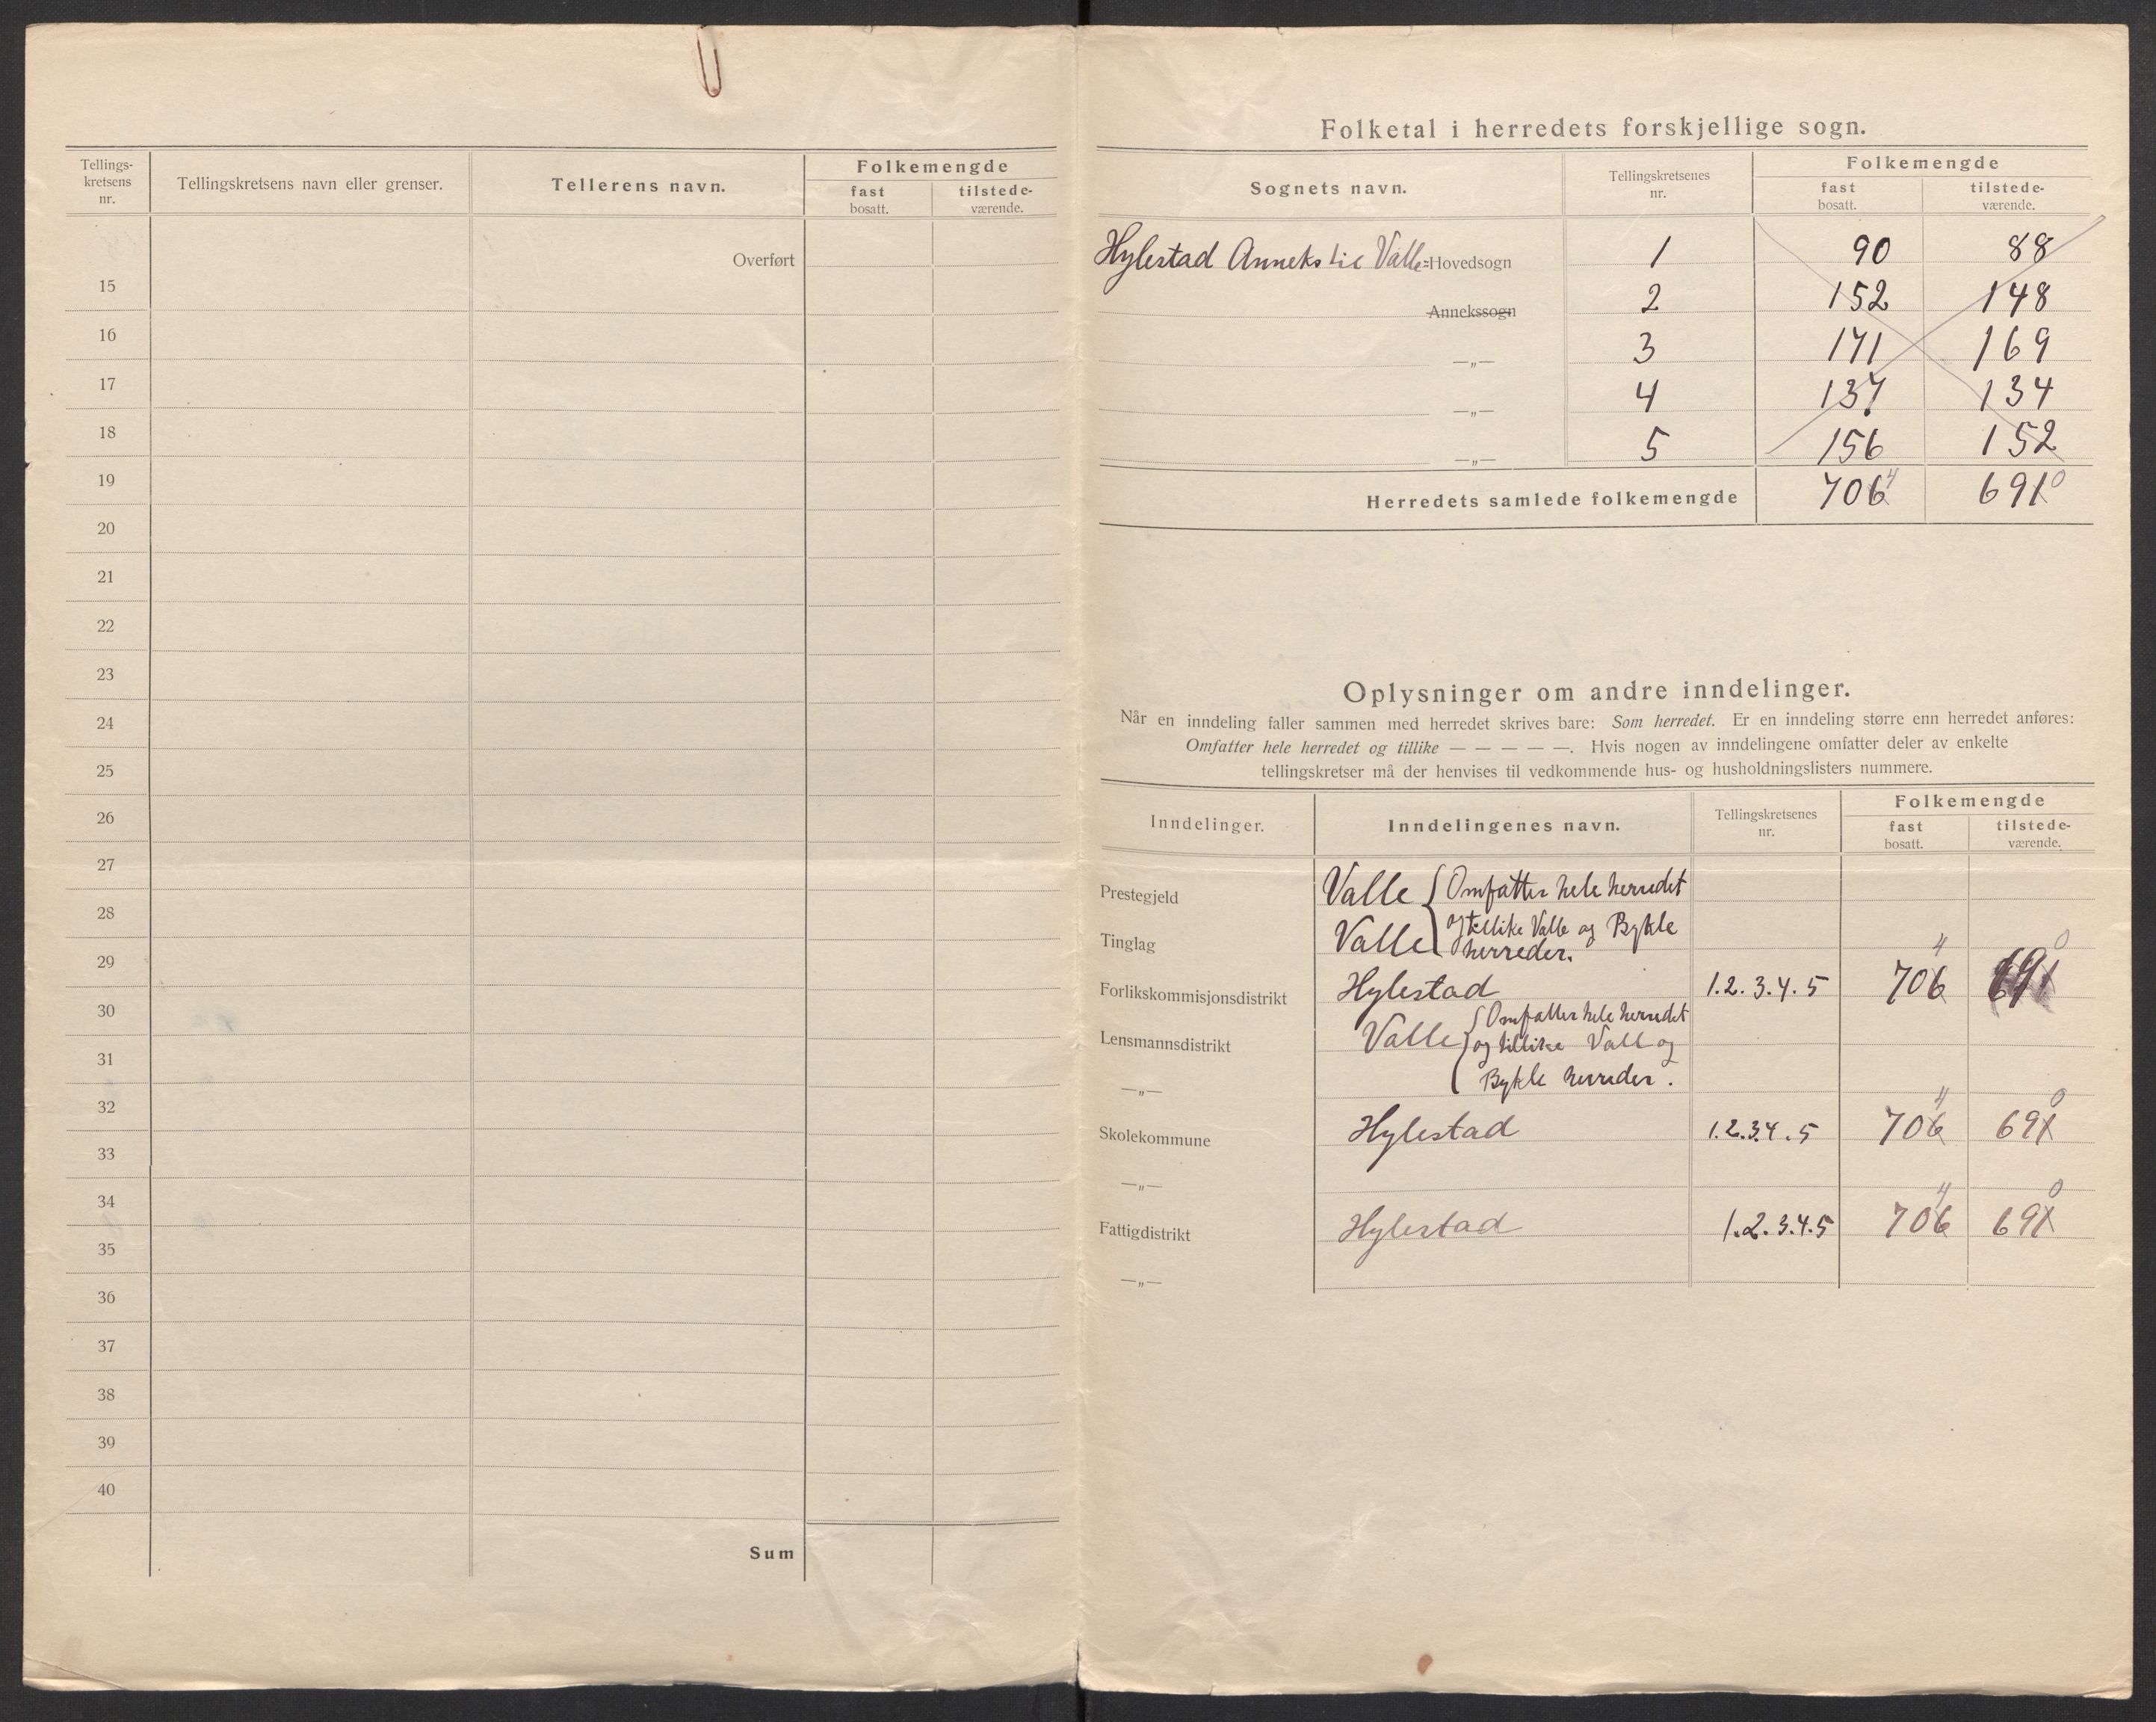 Tellings-
kretsens
nr.
Tellingskretsens navn eller grenser.
Tellerens navn.
Folkemengde
fast
bosatt.
tilstede-
værende.
Overført
15
16
17
18
19
20
21
22
23
24
25
26
27
28
29
30
31
32
33
34
35
36
37
38
39
40
Sum
Folketal i herredets forskjellige sogn.
Sognets navn.
Tellingskretsenes
nr.
Folkemengde
fast
bosatt.
tilstede-
værende.
Hylestad Anneks til Valle=Hovedsogn 1 90 88
Annekssogn 2 152 148
—„— 3 171 169
—„— 4 137 134
—„— 5 156 152
Herredets samlede folkemengde 706 4 691 0
Oplysninger om andre inndelinger.
Når en inndeling faller sammen med herredet skrives bare: Som herredet. Er en inndeling større enn herredet anføres:
Omfatter hele herredet og tillike — — — — —. Hvis nogen av inndelingene omfatter deler av enkelte
tellingskretser må der henvises til vedkommende hus- og husholdningslisters nummere.
Inndelinger.
Inndelingenes navn.
Tellingskretsenes
nr.
Folkemengde
fast
bosatt.
tilstede-
værende.
Prestegjeld Valle { Omfatter hele herredet
Tinglag Valle og tillike Valle og Bykle
herreder.
4 0
Forlikskommisjonsdistrikt Hylestad 1.2.3.4.5 706 691
Omfatter hele herredet
Lensmannsdistrikt Valle og tillike Valle og
—„— Bykle herreder.
4 0
Skolekommune Hylestad 1.2.3.4.5 706 691
—„—
4 0
Fattigdistrikt Hylestad 1.2.3.4.5 706 691
—„—